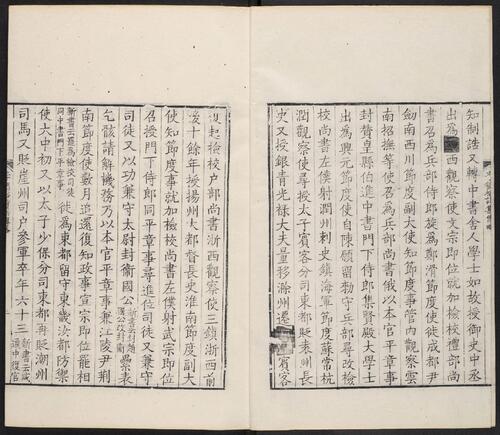 知制誥又轉中書舍人學士如故授御史中丞
出為 西觀察使文宗即位就加檢校禮部尚
書召為兵部侍郎旋為鄭滑節度使徙成都尹
劍南西川節度副大使知節度事管內觀察雲
南招撫等使召為兵部尚書俄以本官平章事
封贊皇縣伯進中書門下侍郎集賢殿大學士
出為興元節度使自陳願留勑守兵部尋改檢
校尚書左僕射潤州刺史鎮海軍節度蘇常杭
潤觀察使尋授太子賓客分司東都貶袁州長
史又授銀青光祿大夫量移滁州遷 賓客
復起檢校戶部尚書浙西觀察使三鎮浙西前
後十餘年授揚州大都督長史淮南節度副大
使知節度事就加檢校尚書左僕射武宗即位
召授門下侍郎同平章事尋進位司徒又兼守
司徒又以功兼守太尉封衞國公 累表
乞骸請解機務乃以本官平章事兼江陵尹荆
南節度使數月追還復知政事宣宗即位罷相
新書云罷為檢校司徒同中書門下平章事 徙為東都留守東畿汝都防禦
使大中初又以太子少保分司東都再貶潮州
司馬又貶崖州司戶參軍卒年六十三